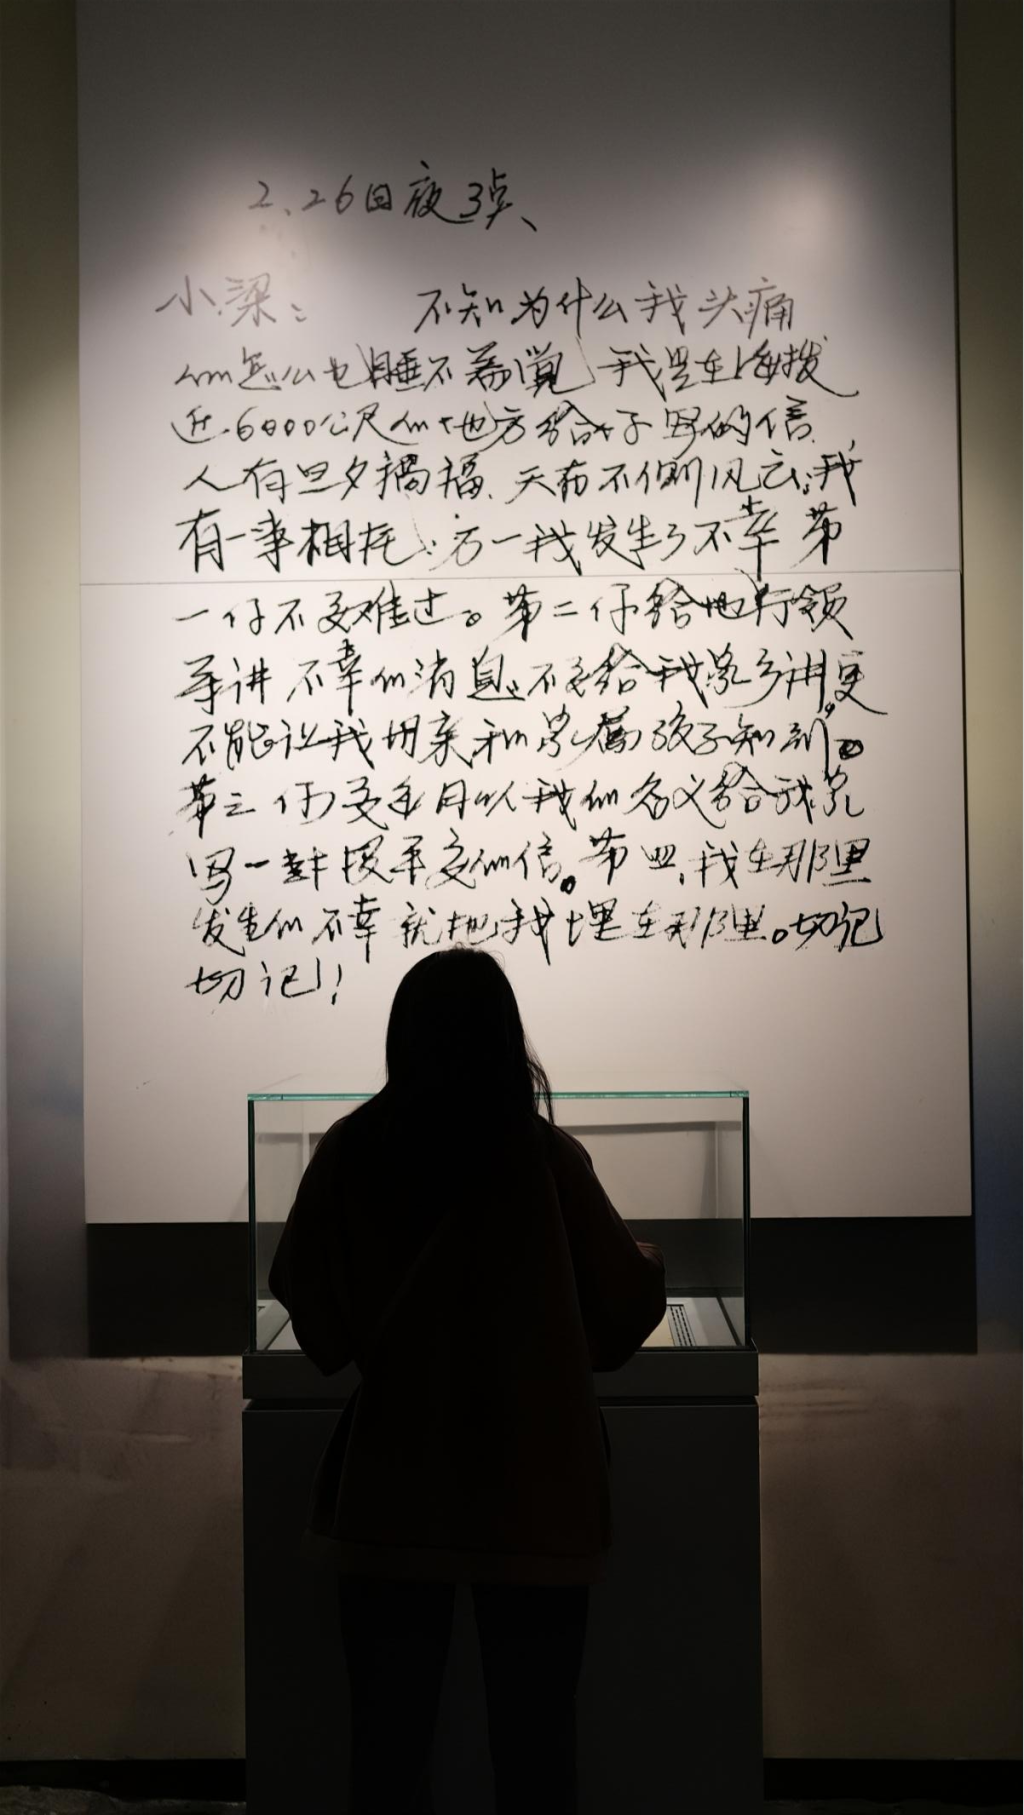 2.26日夜3点、
小梁： 不知为什么我头痛
的怎么也睡不着觉 我是在海拨
近6000公尺的地方给你写的信.
人有旦夕祸福、天有不侧风云，我
有一事相托：万一我发生了不幸 第
一仔不要难过。第二仔给地行领
导讲 不幸的消息，不要给我家乡讲，更
不能让我母亲和家属孩子知到。
第三 你要每月以我的名义给我家
写一封报平安的信。第四，我在那里
发生的不幸 就把我埋在那里。切记
切记！